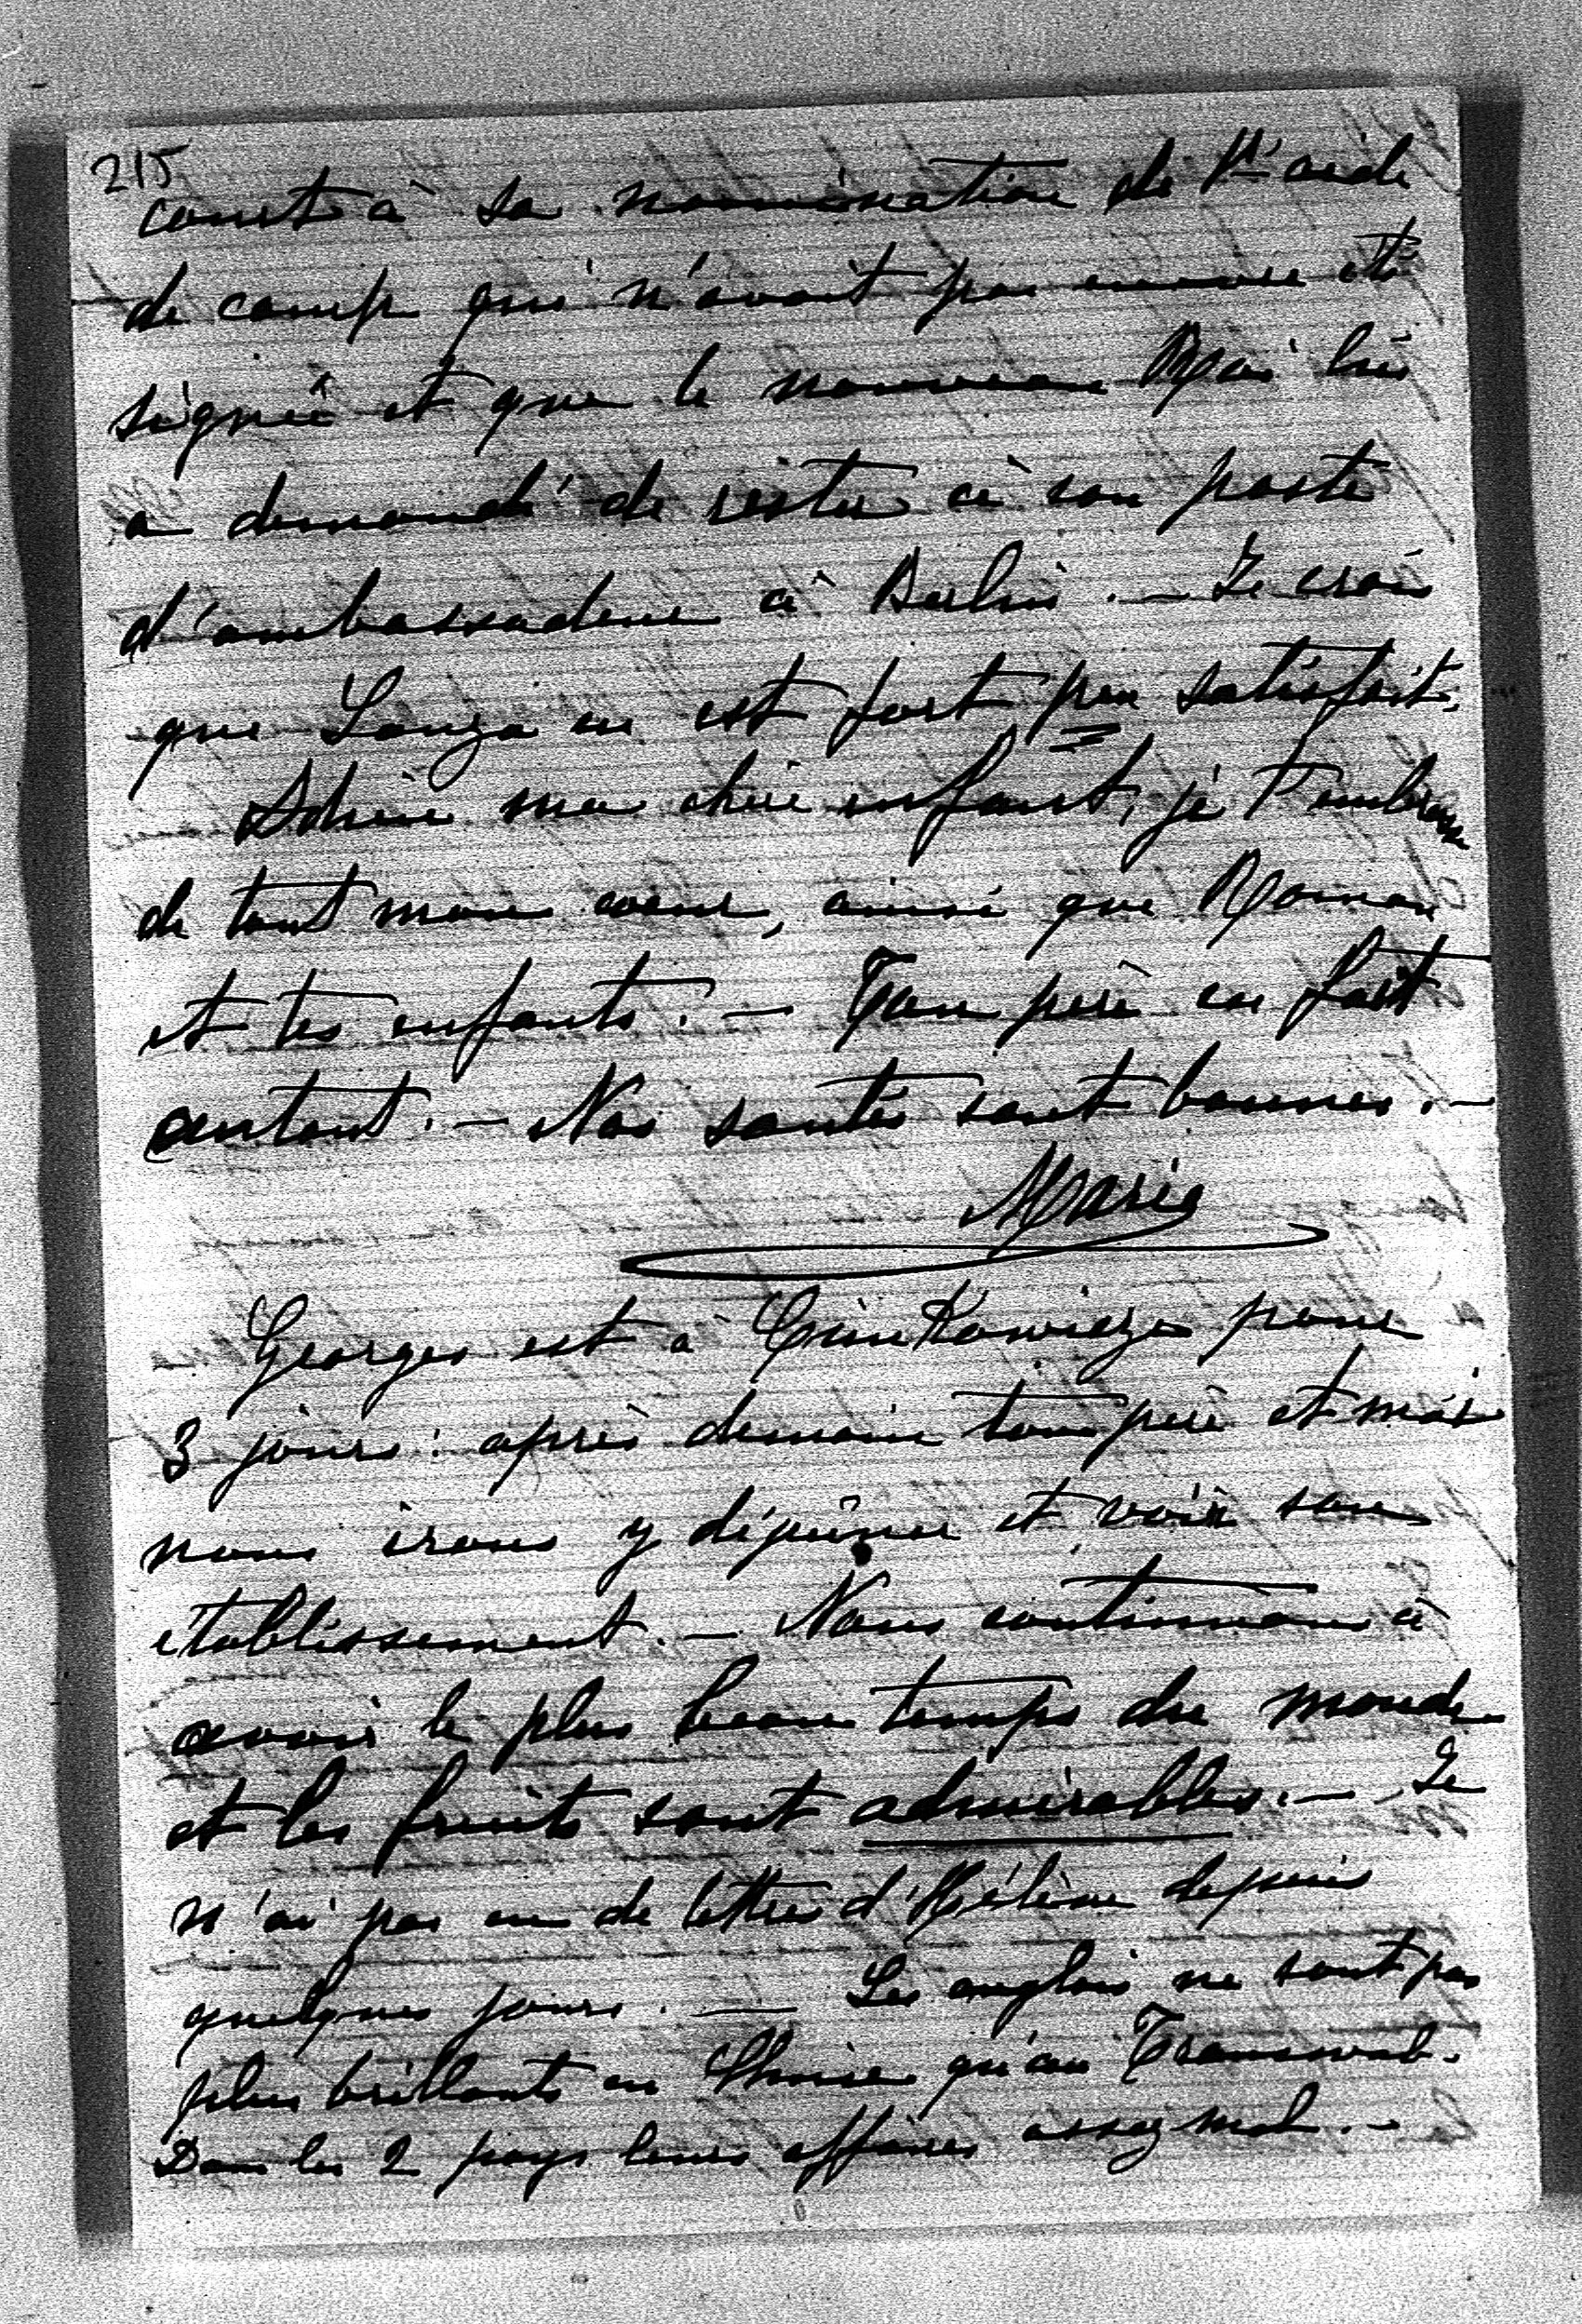 215
court à sa nomination de 1er aide
de camp qui n'avait pas encore été
signée et que le nouveau Roi lui
a demandé de rester à son poste
d'ambassadeur à Berlin. — Je crois
que Lanza en est fort peu satisfait.
Adieu ma chère enfant, je t'embrasse
de tout mon cœur, ainsi que Roman
et tes enfants. — Ton père en fait
autant. — Nos santés sont bonnes. —
Marie
Georges est à pour
3 jours : après demain ton père et moi
nous irons y déjeûner et voir son
établissement. — Nous continuons à
avoir le plus beau temps du monde
et les fruits sont admirables. — Je
n'ai pas eu de lettres d'Hélène depuis
quelques jours. — Les anglais ne sont pas
plus brillants en Chine qu'au Transvaal.
Dans les 2 pays leurs affaires assez mal. —